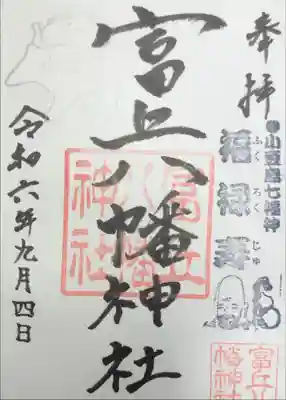 奉拝
●小豆島七福神
福禄寿
ふくろくじゅ
富丘八幡神社
富丘八幡神社
令和六年九月四日
富丘八幡神社